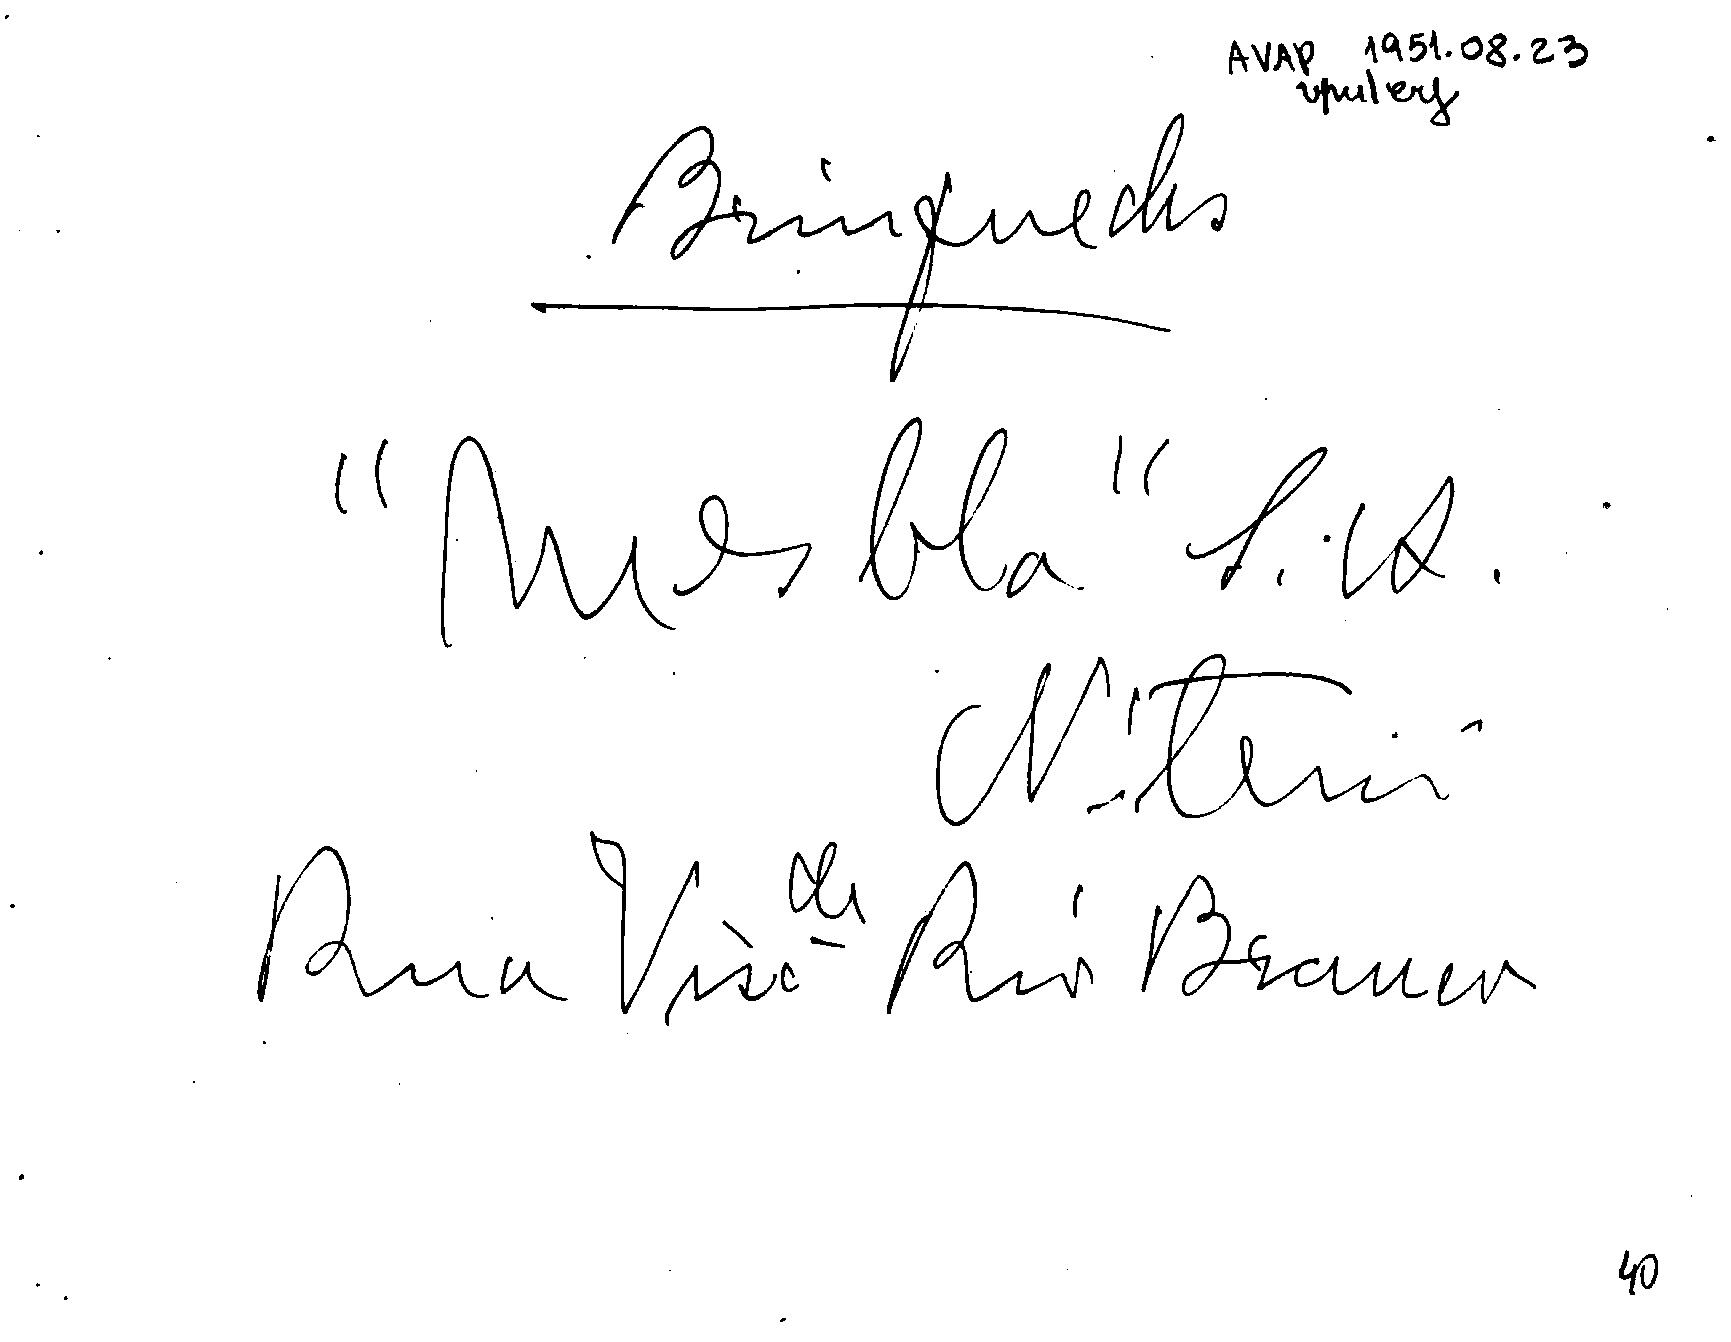 AVAP 1951.08.23
Brinquedos
"Mesbla" S.A.
Niterói
Rua Visc de Rio Branco
40